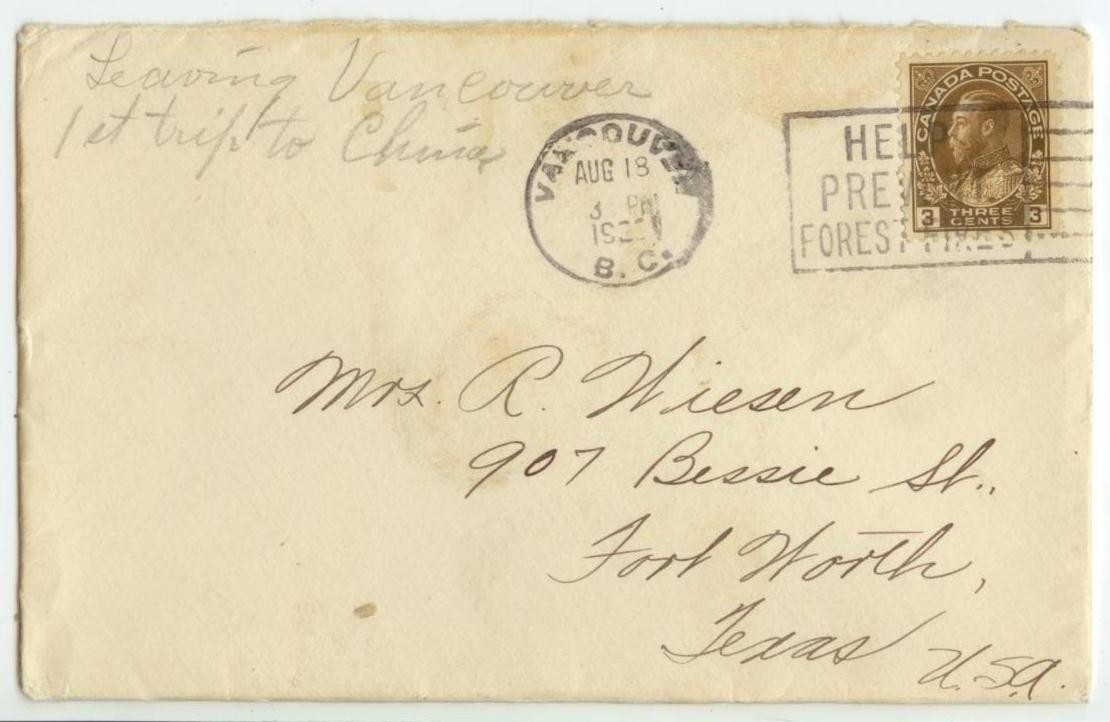 Leaving Vancouver
1st trip to China
VANCOUVER
AUG 18
3 PM
B. C.
HELP
PREVENT
FOREST FIRES
CANADA POSTAGE
3 THREE CENTS 3
Mrs. R. Wiesen
907 Bessie St.,
Fort Worth,
Texas U.S.A.